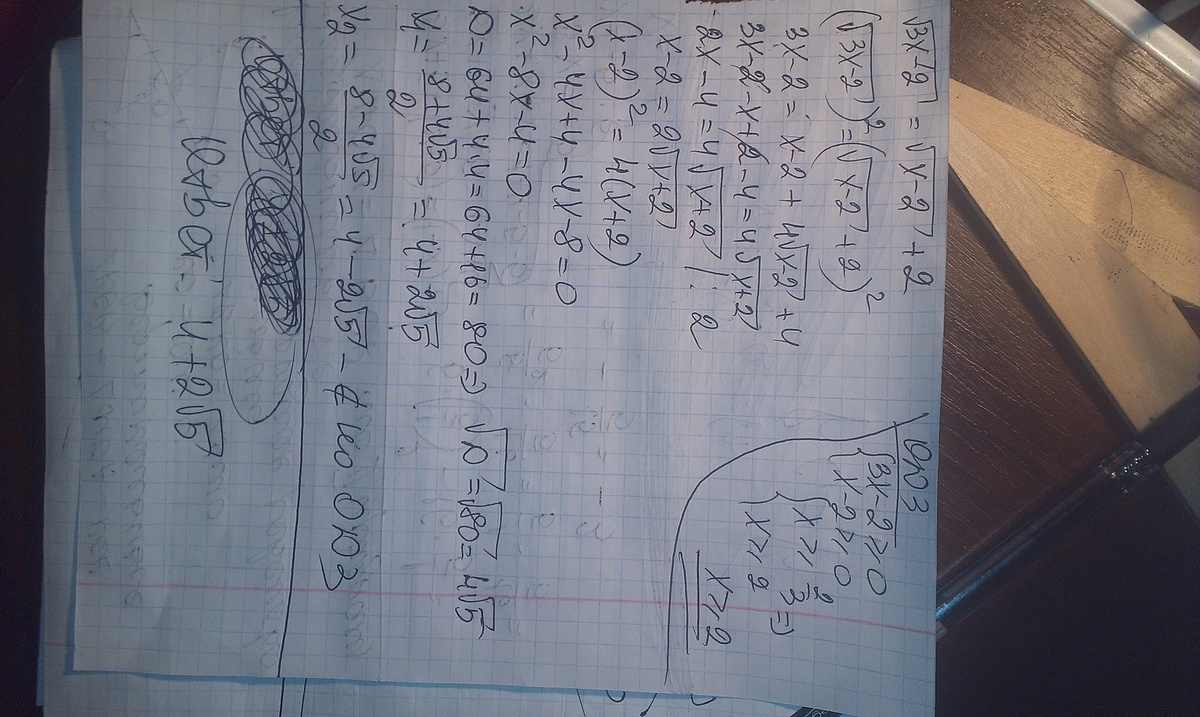 √3x+2 = √x-2 + 2
(√3x-2)² = (√x-2 + 2)²
3x-2 = x-2 + 4√x-2 + 4
3x-2-x+2-4 = 4√x+2
2x-4 = 4√x+2 | : 2
x-2 = 2√x+2
(x-2)² = 4(x+2)
x²-4x+4-4x-8=0
x²-8x-4=0
D=64+4·4=64+16=80⇒ √D=√80=4√5
x₁= 8+4√5/2 = 4+2√5
x₂= 8-4√5/2 = 4-2√5 - ∉ по ОДЗ
Ответ: 4+2√5
ОДЗ
{3x-2≥0
{x-2≥0
{x≥2/3 ⇒
{x≥2
x≥2